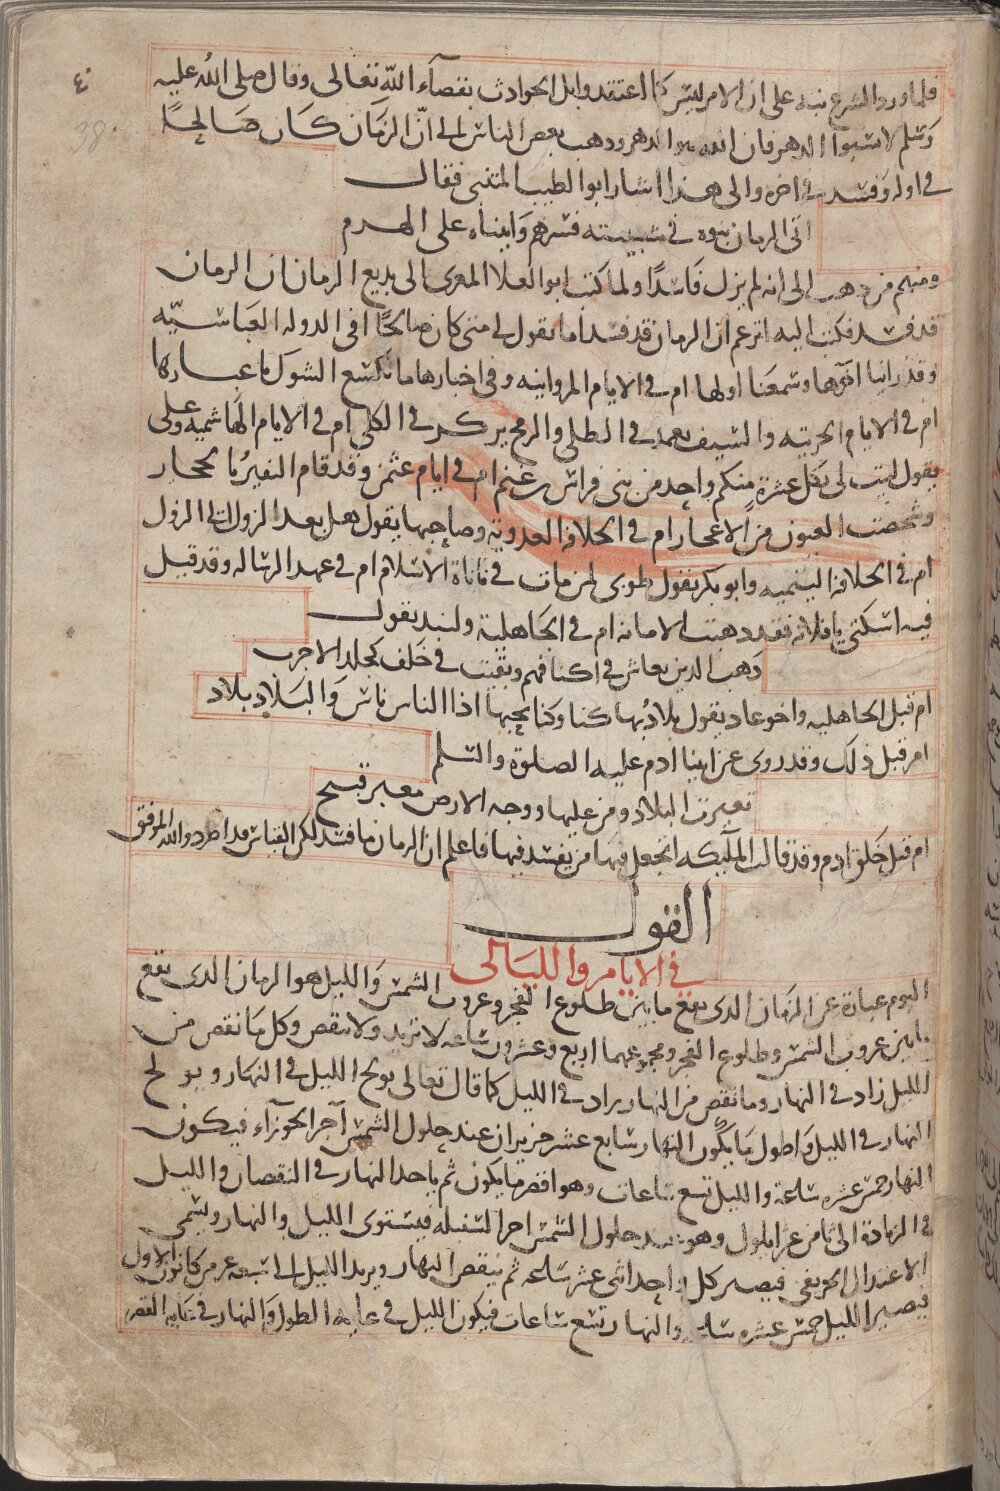 ٤٠
38
فلما ورد الشرع نبه على ان الامر ليس كما اعتقدوا بل الحوادث بقضآء الله تعالى وقال صلى الله عليه
وسلم لا تسبوا الدهر فان الله هو الدهر وذهب بعض الناس الى ان الزمان كان صالحا
في اوله وفسد في اخره والى هذا اشار ابو الطيب المتنبي فقال
اتى الزمان بنوه في شبيبته فسرهم وابيناه على الهرم
ومنهم من ذهب الى انه لم يزل فاسدا ولما كتب ابو العلا المعرى الى بديع الزمان ان الزمان
قد فسد فكتب اليه اتزعم ان الزمان قد فسد اما تقول لي متى كان صالحا افى الدوله العباسيه
وقد راينا اخرها وسمعنا اولها ام في الايام المروانيه وفى اخبارها ما تكسع الشول باغبارها
ام في الايام الحربيه والسيف يغمد في الطلى والرمح يركز في الكلى ام في الايام الهاشميه وعلى
يقول ليت لى بكل عشرة منكم واحد من بنى فراس بن غنم ام في ايام عثمن وقد قام النفير بالحجاز
وشخصت العيون من الاعجاز ام في الخلافه العدويه وصاحبها يقول هل بعد البزول الى النزول
ام في الخلافه التيميه وابو بكر يقول طوبى لمن مات في نانأة الاسلام ام في عهد الرساله وقد قيل
فيه اسكتى يا فلانه فقد ذهبت الامانه ام في الجاهلية ولبيد يقول
ذهب الذين يعاش في اكنافهم وبقيت في خلف كجلد الاجرب
ام قبل الجاهليه واخو عاد يقول بلاد بها كنا وكنا نحبها اذ الناس ناس والبلاد بلاد
ام قبل ذلك وقد روى عن ابينا ادم عليه الصلوة والسلم
تغيرت البلاد ومن عليها ووجه الارض مغبر قبيح
ام قبل خلق ادم وقد قالت المليكه اتجعل فيها من يفسد فيها فاعلم ان الزمان ما فسد لكن القياس قد اطرد والله الموفق
القول
في الايام والليالى
اليوم عبارة عن الزمان الذى يقع ما بين طلوع الفجر وغروب الشمس والليل هو الزمان الذى يقع
ما بين غروب الشمس وطلوع الفجر ومجموعهما اربع وعشرون ساعه لا تزيد ولا تنقص وكل ما نقص من
الليل زاد في النهار وما نقص من النهار زاد في الليل كما قال تعالى يولج الليل في النهار ويولج
النهار في الليل واطول ما يكون النهار سابع عشر حزيران عند حلول الشمس آخر الجوزآء فيكون
النهار خمس عشره ساعة والليل تسع ساعات وهو اقصر ما يكون ثم ياخد النهار في النقصان والليل
في الزيادة الى ثامن عشر ايلول وهو عند حلول الشمس اخر السنبله فيستوى الليل والنهار ويسمى
الاعتدال الخريفى فيصير كل واحد اثنى عشر ساعه ثم ينقص النهار ويزيد الليل الى تسعه عشر من كانون الاول
فيصير الليل خمس عشره ساعه والنهار تسع ساعات فيكون الليل في غاية الطول والنهار في غايه القصر